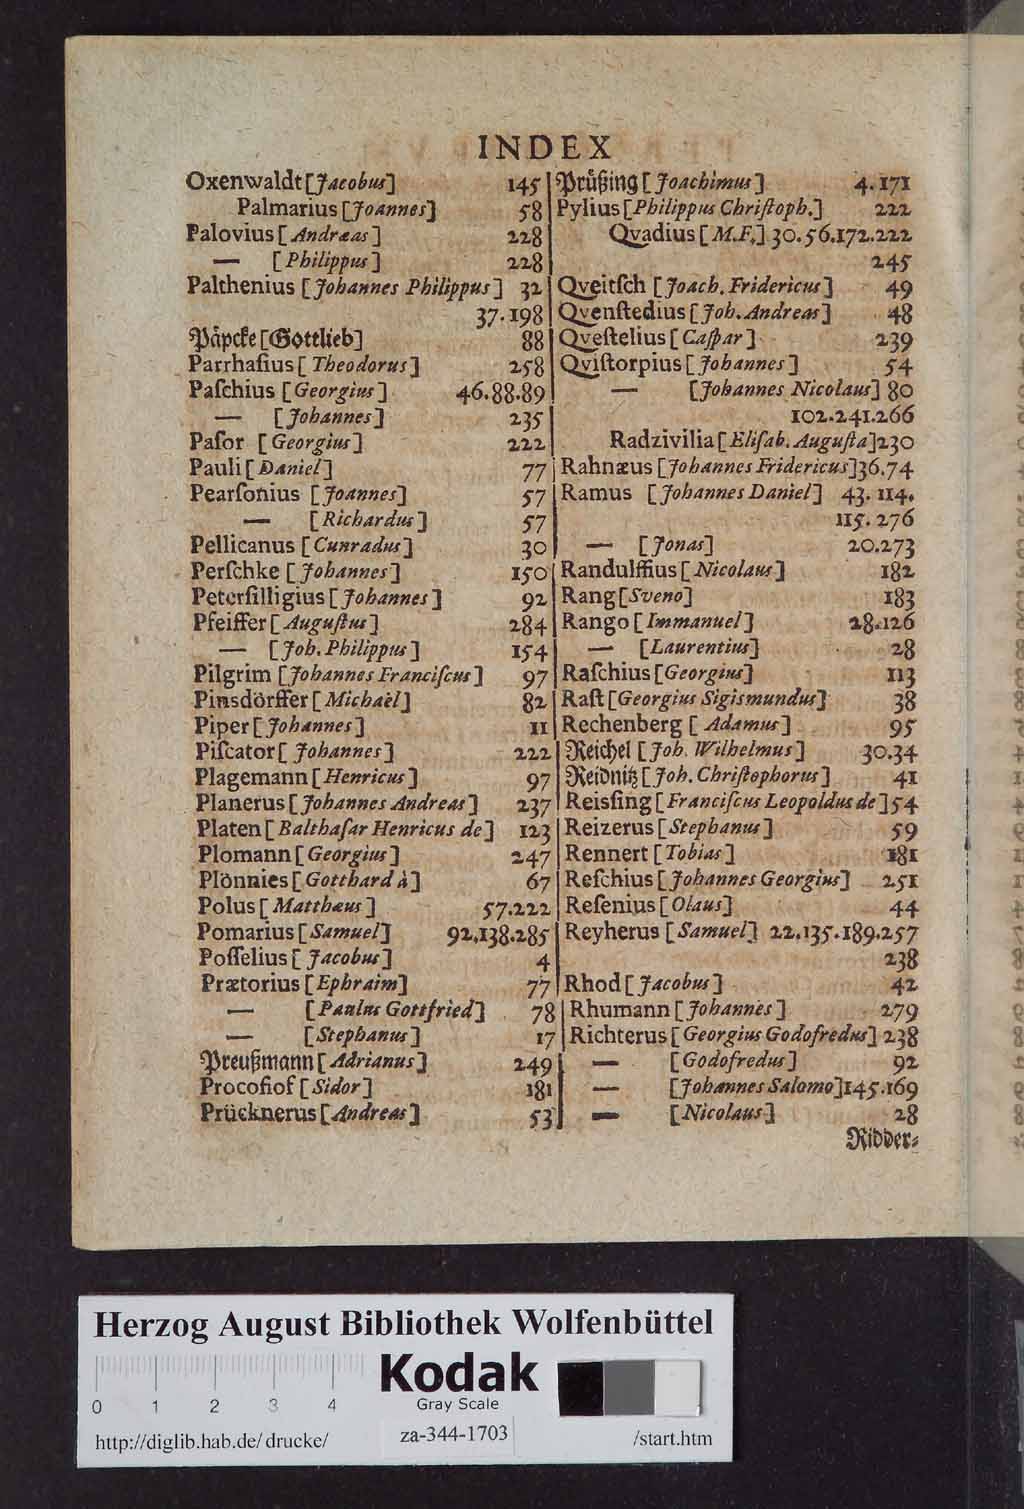 INDEX
Oxenwaldt [Jacobus] 145
Palmarius [Joannes] 58
Palovius [Andræas] 228
— [Philippus] 228
Palthenius [Johannes Philippus] 32
37.198
Påpcke [Gottlieb] 88
Parrhaſius [Theodorus] 258
Paſchius [Georgius] 46.88.89
— [Johannes] 235
Paſor [Georgius] 222
Pauli [Daniel] 77
Pearſonius [Joannes] 57
— [Richardus] 57
Pellicanus [Cunradus] 30
Perſchke [Johannes] 150
Peterſilligius [Johannes] 92
Pfeiffer [Auguſtus] 284
— [Joh. Philippus] 154
Pilgrim [Johannes Franciſcus] 97
Pinsdörffer [Michaël] 82
Piper [Johannes] 11
Piſcator [Johannes] 222
Plagemann [Henricus] 97
Planerus [Johannes Andreas] 237
Platen [Balthaſar Henricus de] 123
Plomann [Georgius] 247
Plönnies [Gotthard à] 67
Polus [Matthæus] 57.222
Pomarius [Samuel] 92.138.285
Poſſelius [Jacobus] 4
Prætorius [Ephraim] 77
— [Paulus Gottfried] 78
— [Stephanus] 17
Preußmann [Adrianus] 249
Procofiof [Sidor] 181
Prücknerus [Andreas] 53
Průßing [Joachimus] 4.171
Pylius [Philippus Chriſtoph.] 222
Qvadius [M.F.] 30.56.172.222
245
Qveitſch [Joach. Fridericus] 49
Qvenſtedius [Joh. Andreas] 48
Qveſtelius [Caſpar] 239
Qviſtorpius [Johannes] 54
— [Johannes Nicolaus] 80
102.241.266
Radzivilia [Eliſab. Auguſta] 230
Rahnæus [Johannes Fridericus] 36.74
Ramus [Johannes Daniel] 43. 114.
115. 276
— [Jonas] 20.273
Randulffius [Nicolaus] 182
Rang [Sveno] 183
Rango [Immanuel] 28.126
— [Laurentius] 28
Raſchius [Georgius] 113
Raſt [Georgius Sigismundus] 38
Rechenberg [Adamus] 95
Reichel [Joh. Wilhelmus] 30.34
Reidnitz [Joh. Chriſtophorus] 41
Reisſing [Franciſcus Leopoldus de] 54
Reizerus [Stephanus] 59
Rennert [Tobias] 181
Reſchius [Johannes Georgius] 251
Reſenius [Olaus] 44
Reyherus [Samuel] 22.135.189.257
238
Rhod [Jacobus] 42
Rhumann [Johannes] 279
Richterus [Georgius Godofredus] 238
— [Godofredus] 92
— [Johannes Salomo] 145.169
— [Nicolaus] 28
Ridder⸗
Herzog August Bibliothek Wolfenbüttel
Kodak
Gray Scale
0 1 2 3 4
http://diglib.hab.de/drucke/ za-344-1703 /start.htm